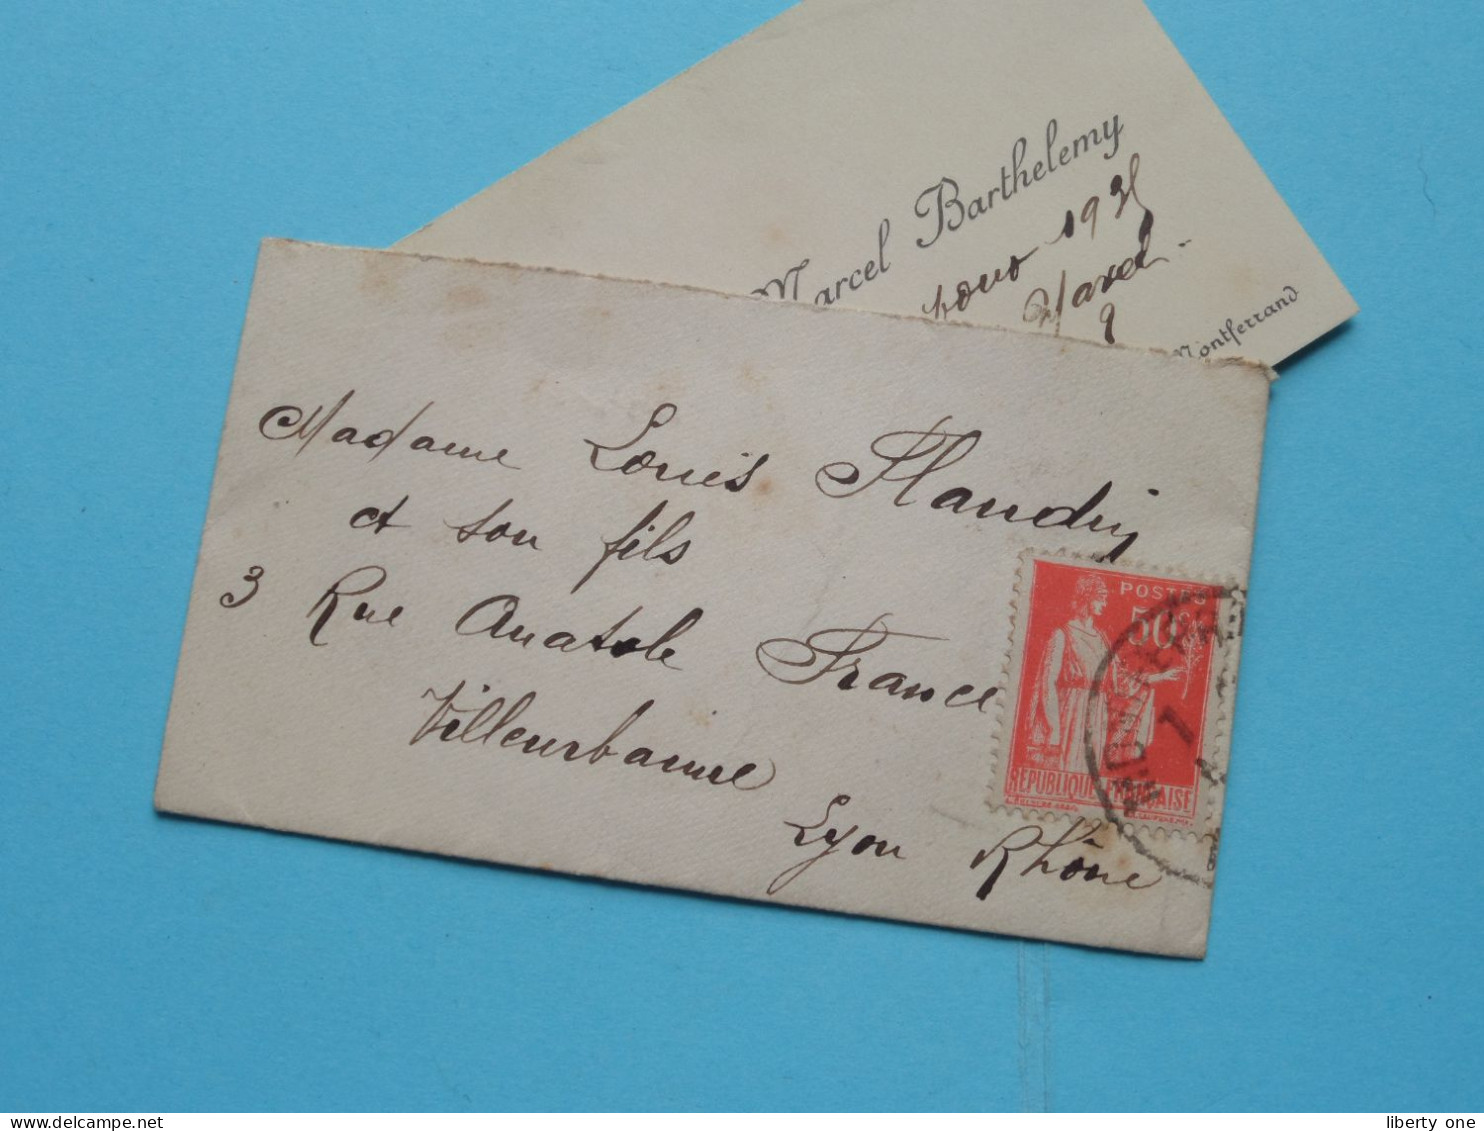 Marcel Barthelemy
pour 1935
Marcel
Montferrand
Madame Louis Flandin
et son fils
3 Rue Anatole France
Villeurbanne
Lyon Rhône
POSTES
50c
REPUBLIQUE FRANÇAISE
www.delcampe.net
liberty one